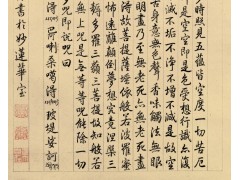 時照見五蘊皆空度一切苦厄
是空空即是色受想行識亦
滅不垢不淨不增不減是故空
舌身意無色聲香味觸法無眼
明盡乃至無老死亦無老死盡
得故菩提薩埵依般若波羅蜜
怖遠離顛倒夢想究竟涅槃三
耨多羅三藐三菩提故知般若
無上咒是無等等咒能除一切
咒即說咒曰
桑噶得 玻堤娑訶
書於妙蓮華室